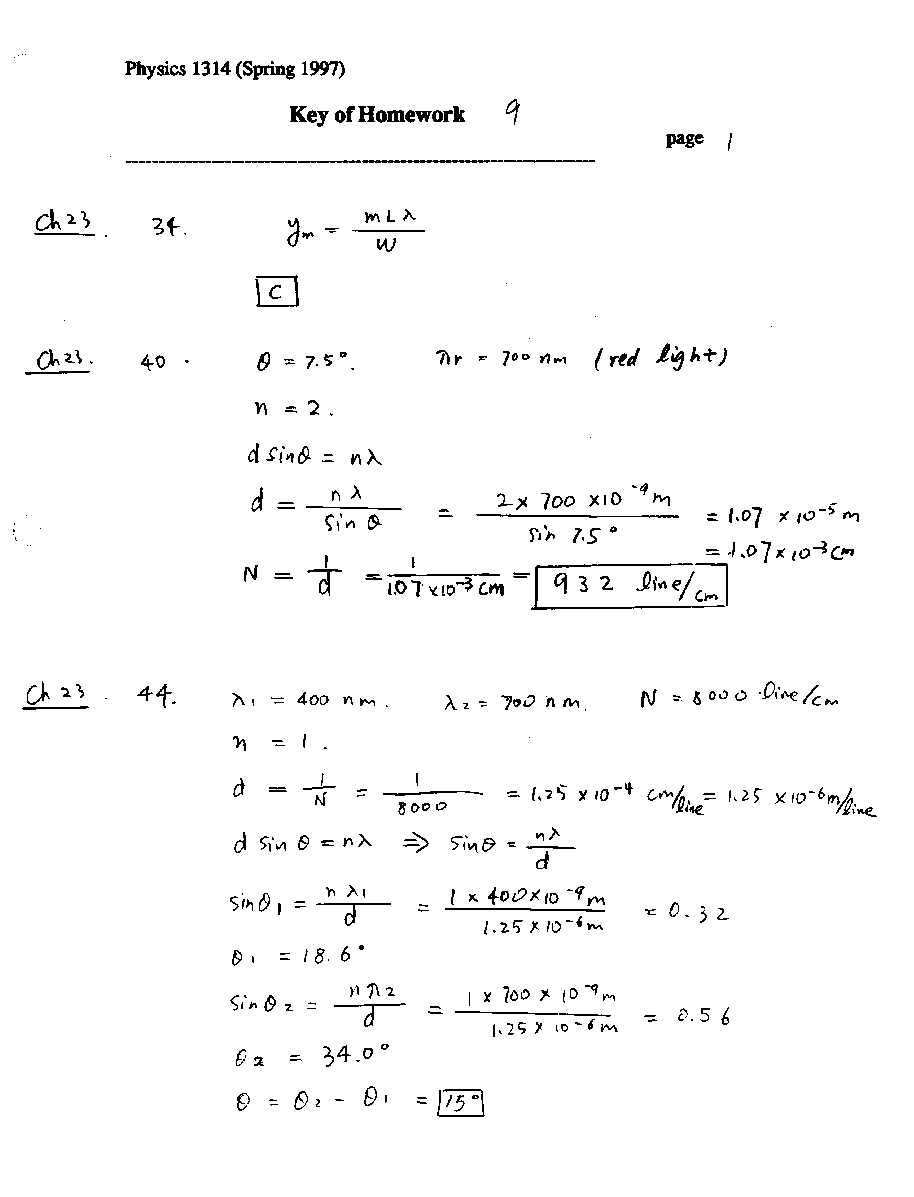 Physics 1314 (Spring 1997)
Key of Homework 9
page 1
Ch 23. 34. yₘ = mLλ / W
C
Ch 23. 40. θ = 7.5°. λr = 700 nm (red light)
n = 2.
d sinθ = nλ
d = nλ / sin θ = 2 × 700 × 10⁻⁹ m / sin 7.5° = 1.07 × 10⁻⁵ m
= 1.07 × 10⁻³ cm
N = 1/d = 1 / 1.07 × 10⁻³ cm = 932 line/cm
Ch 23. 44. λ₁ = 400 nm. λ₂ = 700 nm. N = 8000 line/cm
n = 1.
d = 1/N = 1/8000 = 1.25 × 10⁻⁴ cm/line = 1.25 × 10⁻⁶ m/line
d sin θ = nλ ⇒ sinθ = nλ/d
sinθ₁ = nλ₁ / d = 1 × 400 × 10⁻⁹ m / 1.25 × 10⁻⁶ m = 0.32
θ₁ = 18.6°
sinθ₂ = nλ₂ / d = 1 × 700 × 10⁻⁹ m / 1.25 × 10⁻⁶ m = 0.56
θ₂ = 34.0°
θ = θ₂ - θ₁ = 15°